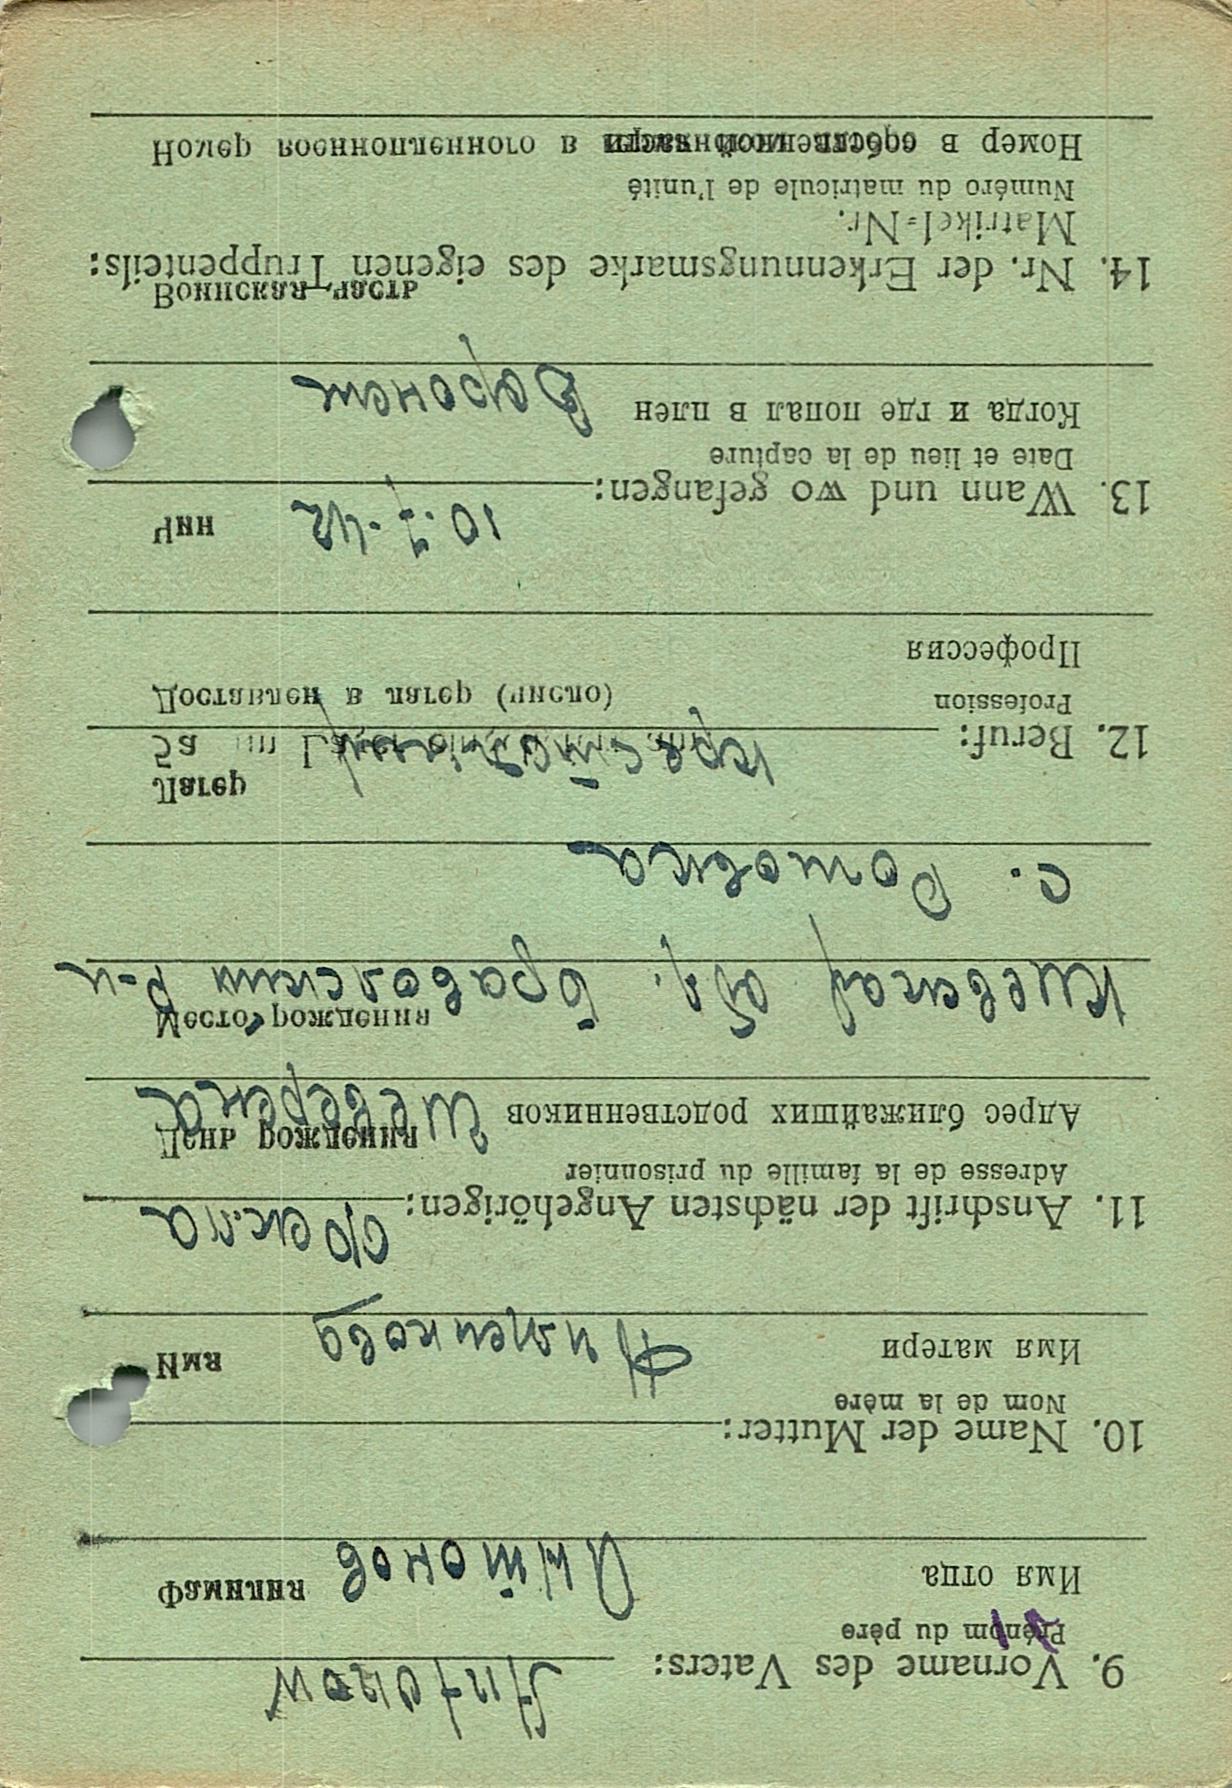 9. Vorname des Vaters: Antonow
Prénom du père
Имя отца Антонов Фамилия
10. Name der Mutter:
Nom de la mère
Имя матери Имя
11. Anschrift der nächsten Angehörigen: Фекла
Adresse de la famille du prisonnier День рождения
Адрес ближайших родственников
Место рождения
Киевская обл. р-н
с.
Лагер
12. Beruf:
Profession Доставлен в лагер (число)
Профессия
Чин
13. Wann und wo gefangen: 10.7.42
Date et lieu de la capture
Когда и где попал в плен Воронеж
Воинская часть
14. Nr. der Erkennungsmarke des eigenen Truppenteils:
Matrikel-Nr.
Numéro du matricule de l'unité
Номер в собственной части Номер военнопленного в